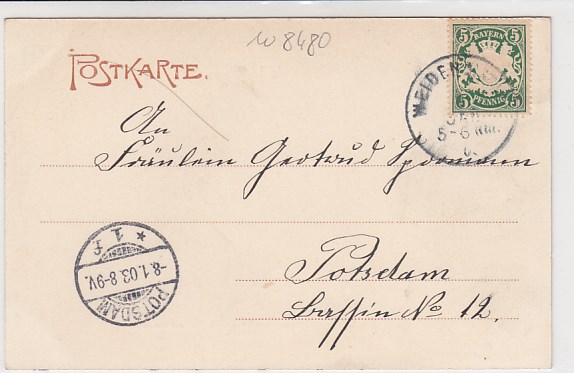 w 8480
POSTKARTE.
5 BAYERN 5
5 PFENNIG 5
WEIDEN
5-6 Nm.
An
Fräulein Gertrud
Potsdam
Bassin No 12.
* 1 f
-8.1.03.8-9V.
POTSDAM